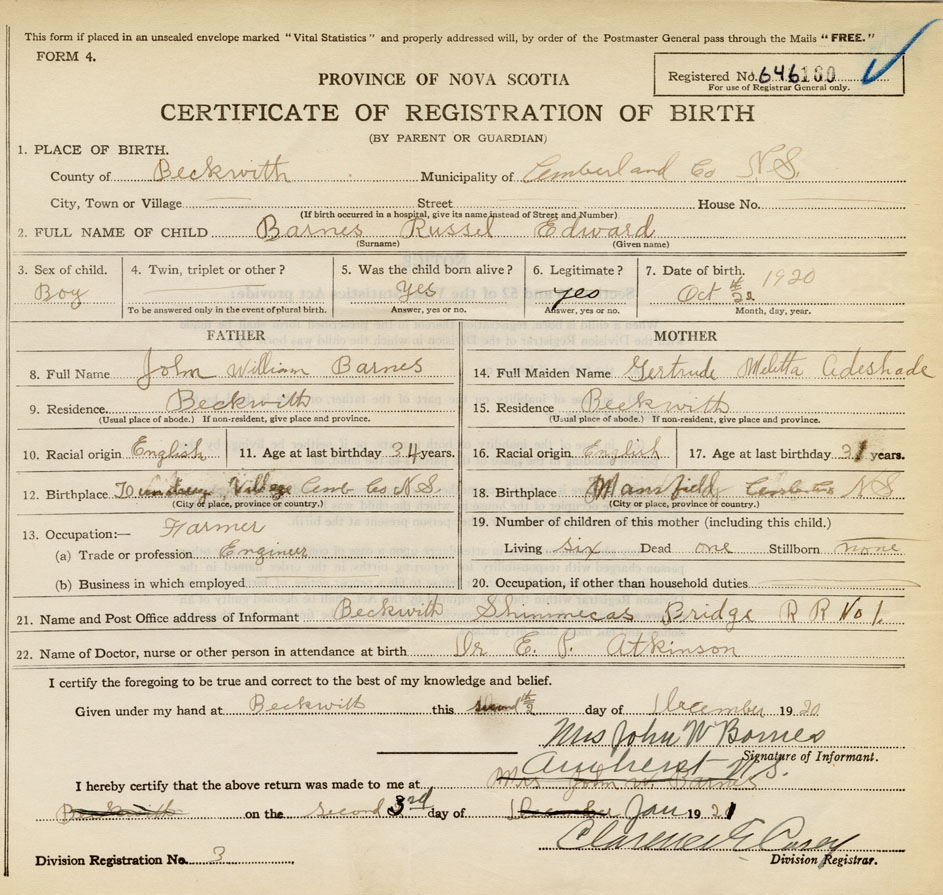 This form if placed in an unsealed envelope marked "Vital Statistics" and properly addressed will, by order of the Postmaster General pass through the Mails "FREE."
FORM 4.
PROVINCE OF NOVA SCOTIA
Registered No. 646180
For use of Registrar General only.
CERTIFICATE OF REGISTRATION OF BIRTH
(BY PARENT OR GUARDIAN)
1. PLACE OF BIRTH.
County of Beckwith Municipality of Cumberland Co N.S.
City, Town or Village Street House No.
(If birth occurred in a hospital, give its name instead of Street and Number)
2. FULL NAME OF CHILD Barnes Russel Edward
(Surname) (Given name)
3. Sex of child. 4. Twin, triplet or other? 5. Was the child born alive? 6. Legitimate? 7. Date of birth. 1920
Boy Yes yes Oct 22
To be answered only in the event of plural birth. Answer, yes or no. Answer, yes or no. Month, day, year.
FATHER MOTHER
8. Full Name John William Barnes 14. Full Maiden Name Gertrude Adeshade
9. Residence. Beckwith 15. Residence Beckwith
(Usual place of abode.) If non-resident, give place and province. (Usual place of abode.) If non-resident, give place and province.
10. Racial origin English 11. Age at last birthday 34 years. 16. Racial origin English 17. Age at last birthday 31 years.
12. Birthplace Village Cumb Co N S 18. Birthplace Mansfield N S
(City or place, province or country.) (City or place, province or country.)
13. Occupation:— Farmer 19. Number of children of this mother (including this child.)
(a) Trade or profession Engineer Living six Dead one Stillborn none
(b) Business in which employed 20. Occupation, if other than household duties.
21. Name and Post Office address of Informant Beckwith Shinmecas Bridge R R No 1.
22. Name of Doctor, nurse or other person in attendance at birth Dr E. P. Atkinson
I certify the foregoing to be true and correct to the best of my knowledge and belief.
Given under my hand at Beckwith this second day of December 1920
Mrs John W Barnes
Signature of Informant.
Amherst N.S.
I hereby certify that the above return was made to me at Mrs John W. Barnes
Beckwith on the second 3rd day of December Jan 1921
Clarence E Casey
Division Registration No. 3 Division Registrar.